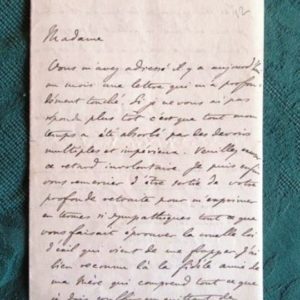 12
Madame
Vous m'avez adressé il y a aujourd'hui
un mois une lettre qui m'a profon-
dément touché. Si je ne vous ai pas
répondu plus tôt c'est que tout mon
temps a été absorbé par des devoirs
multiples et impérieux. Veuillez
ce retard involontaire. Je puis enfin
vous remercier d'être sortie de votre
profonde retraite pour m'exprimer
en termes si sympathiques tout ce que
vous faisait éprouver la cruelle loi
qui vient de me frapper. J'ai
bien reconnu là la fidèle amie de
ma Mère qui comprend tout ce que